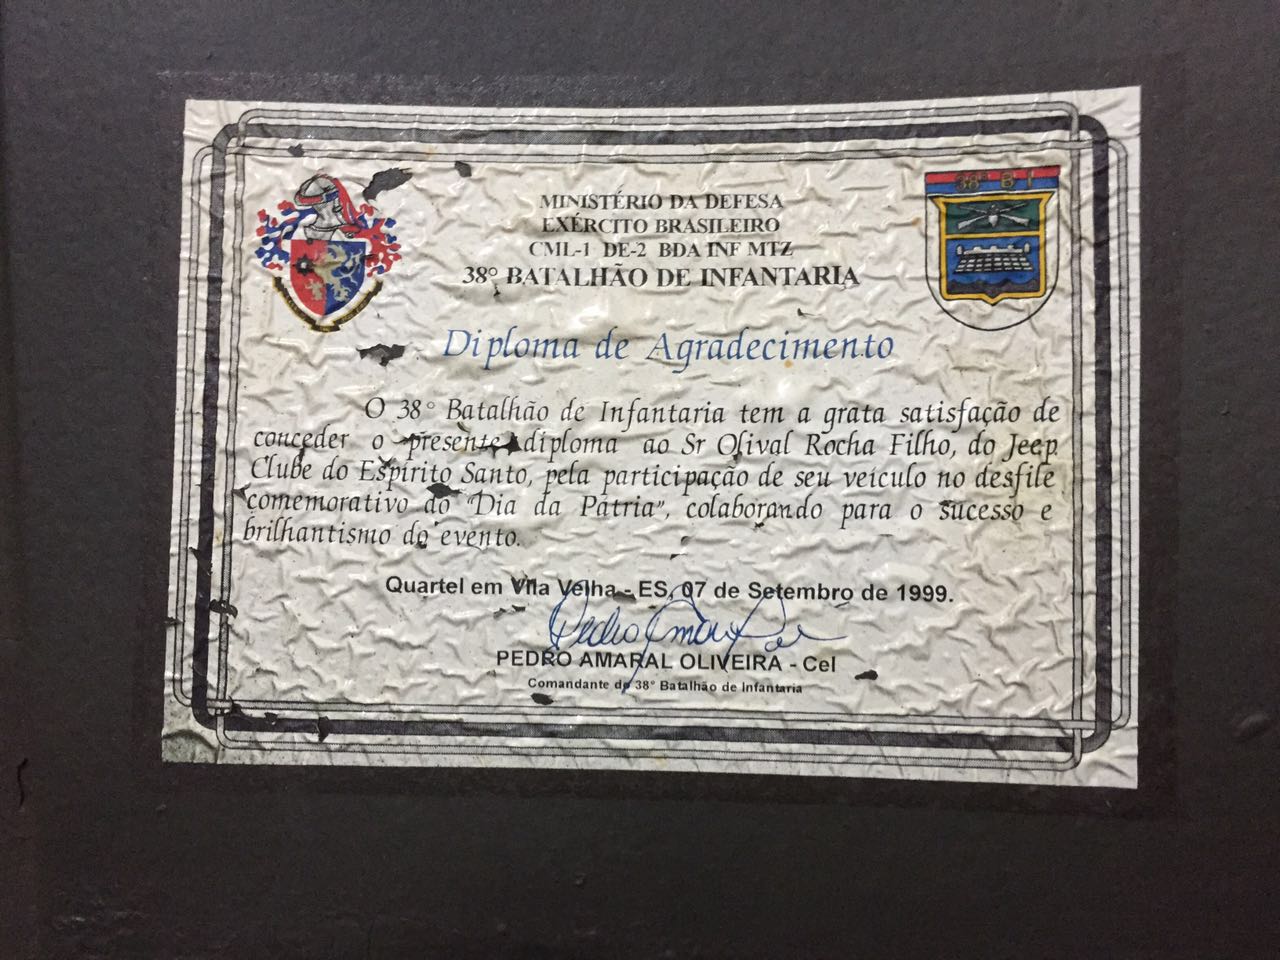 MINISTÉRIO DA DEFESA
EXÉRCITO BRASILEIRO
CML-1 DE-2 BDA INF MTZ
38º BATALHÃO DE INFANTARIA
38º B I
Diploma de Agradecimento
O 38º Batalhão de Infantaria tem a grata satisfação de
conceder o presente diploma ao Sr Olival Rocha Filho, do Jeep
Clube do Espírito Santo, pela participação de seu veículo no desfile
comemorativo do "Dia da Pátria", colaborando para o sucesso e
brilhantismo do evento.
Quartel em Vila Velha - ES, 07 de Setembro de 1999.
PEDRO AMARAL OLIVEIRA - Cel
Comandante do 38º Batalhão de Infantaria